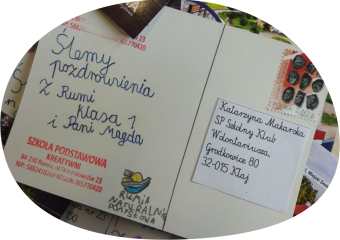 Ślemy
pozdrowienia
z Rumi
klasa 1
i Pani Magda
SZKOŁA PODSTAWOWA
KREATYWNI
Rumia
NATURALNIE
POMYSŁOWA
Katarzyna Makarska
SP Szkolny Klub
Wolontariusza,
Grodkowice 80
32-015 Kłaj